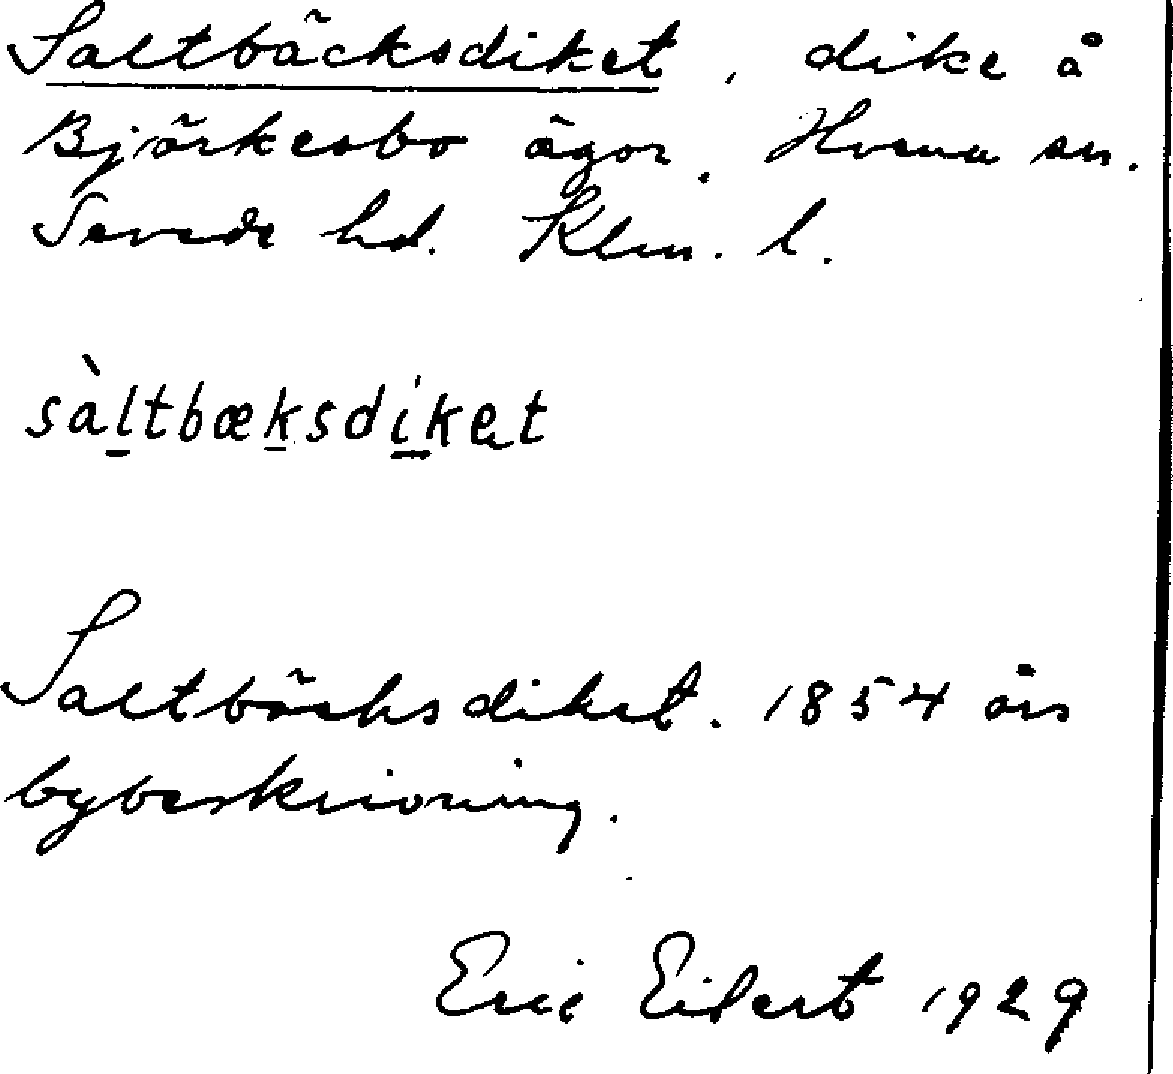 Saltbäcksdiket, dike å
Björkesbo ägor. Hvena sn.
Sevede hd. Klm. l.
sàltbæksdiket
Saltbäcksdiket. 1854 års
bybeskrivning.
Eric Eilert 1929